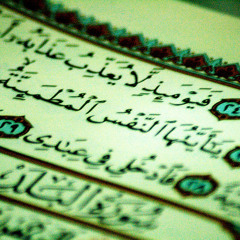 ٢٤ فَيَوْمَئِذٍ لَّا يُعَذِّبُ عَذَابَهُۥٓ
يَٰٓأَيَّتُهَا ٱلنَّفْسُ ٱلْمُطْمَئِنَّةُ
٢٨ فَٱدْخُلِى فِى عِبَٰدِى ٢٩
سُورَةُ ٱلْبَلَدِ